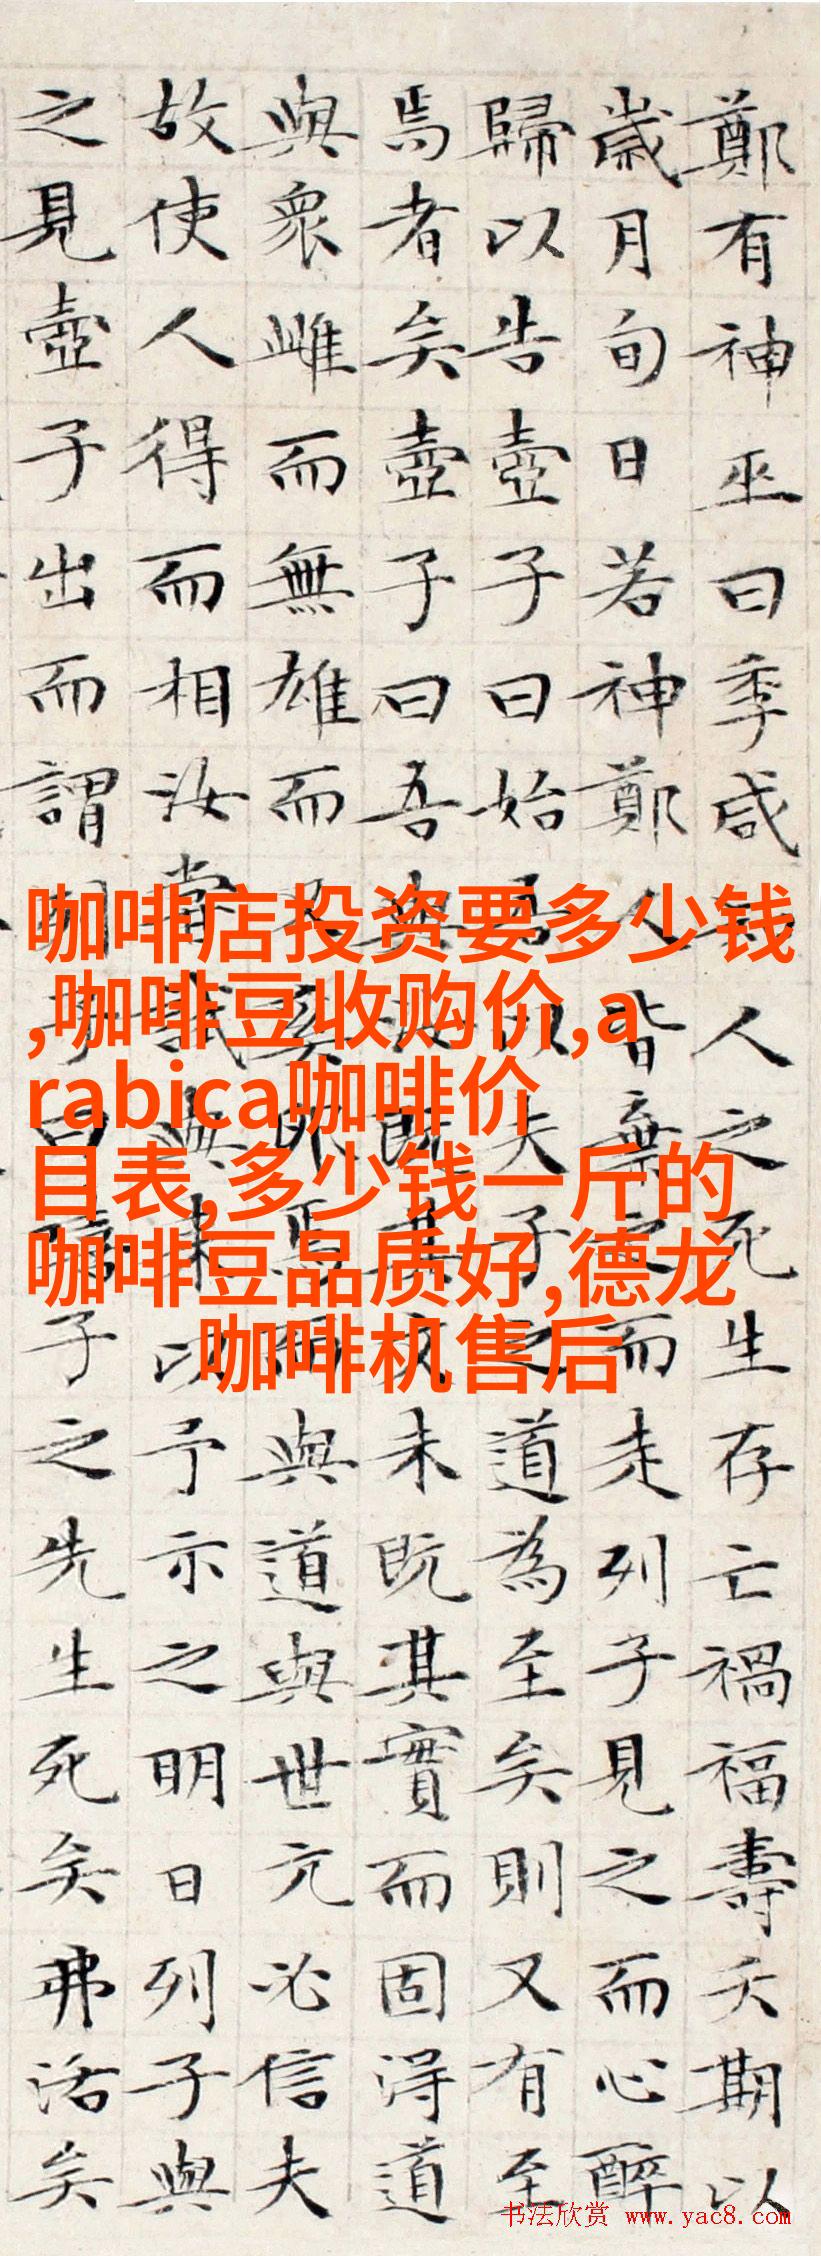 鄭有神巫曰季咸人之死生存亡禍福壽夭期以
歲月旬日若神鄭人皆棄而走列子見之而心醉
歸以告壺子曰始吾以夫子之道為至矣則又有至
焉者矣壺子曰吾與汝既其文未既其實而固得道
與眾雌而無雄而又奚卵焉而與道與世亢必信夫
故使人得而相汝嘗試與來以予示之明日列子與
之見壺子出而謂子曰子之先生死矣弗活矣
咖啡店投资要多少钱
,咖啡豆收购价,a
rabica咖啡价
目表,多少钱一斤的
咖啡豆品质好,德龙
咖啡机售后
书法欣赏 www.yac8.com